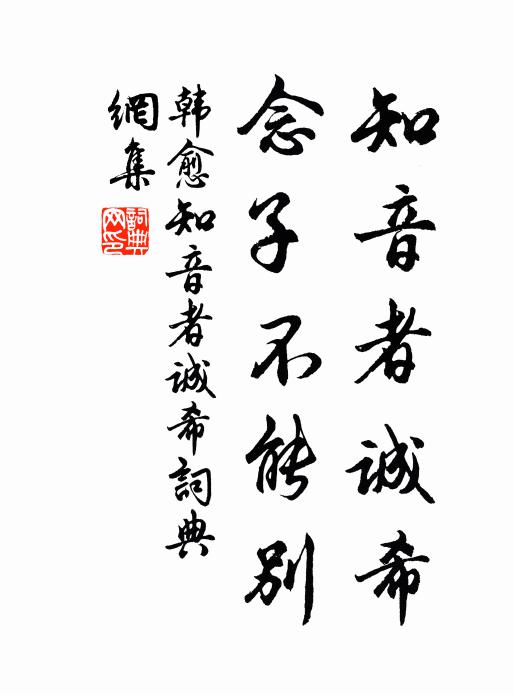 知音者诚希
念子不能别
韩愈知音者诚希詞典
網集
詞典
网印